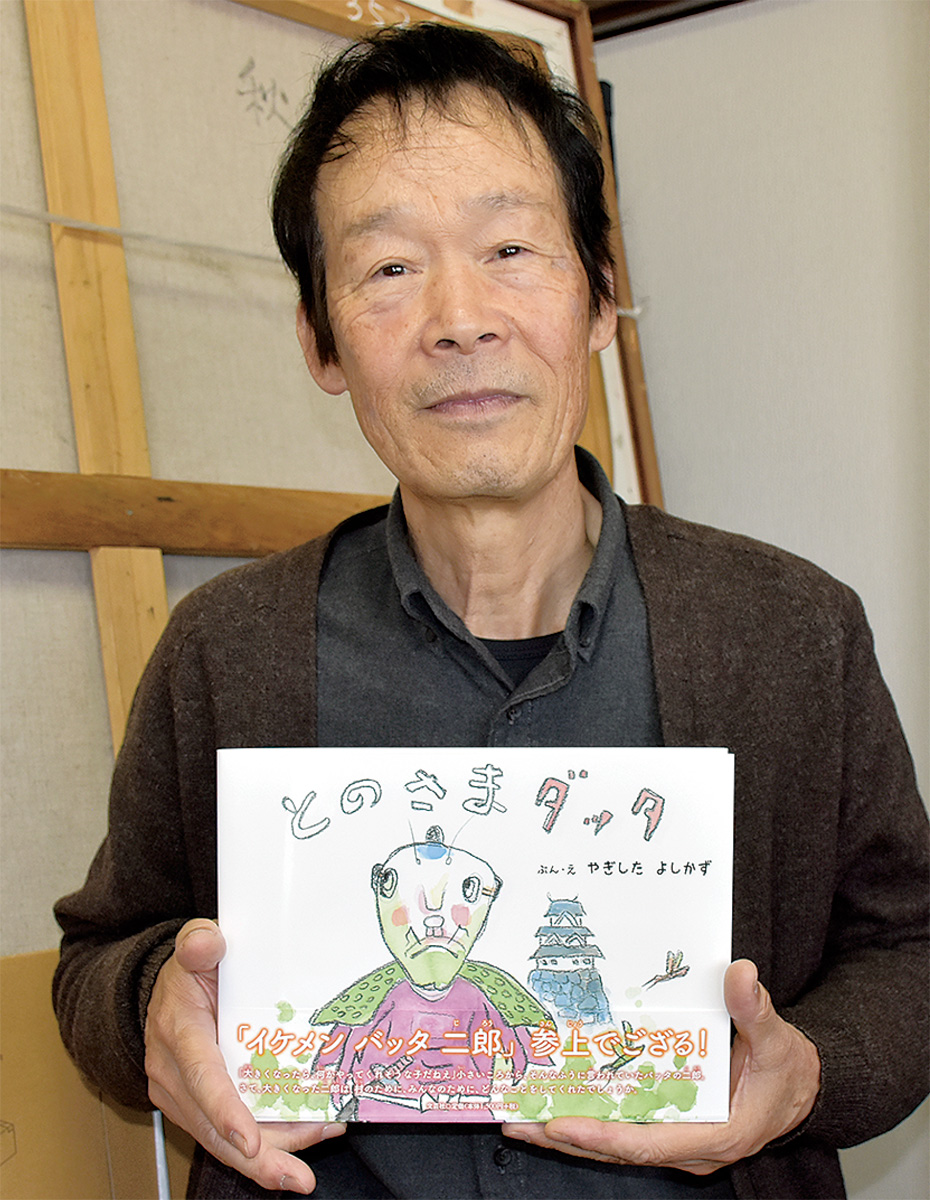 353
秋
とのさまダッタ
ぶん・え やぎした よしかず
「イケメン バッタ 二郎」参上でござる!
「大きくなったら、何かやってくれそうな子だねえ」小さいころから、そんなふうに言われていたバッタの二郎。
さて、大きくなった二郎は、村のために、みんなのために、どんなことをしてくれたでしょうか。
文芸社